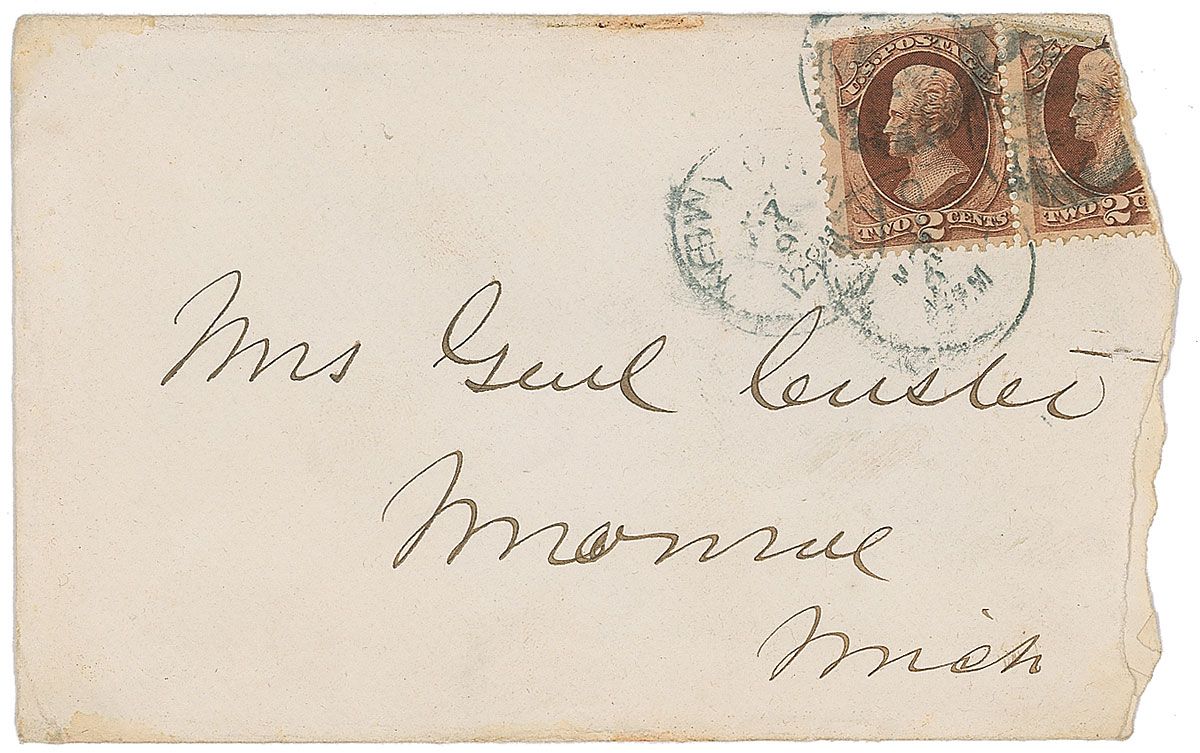 U.S. POSTAGE
TWO 2 CENTS
TWO 2 C
NEW YORK
Mrs Genl Custer
Monroe
Mich